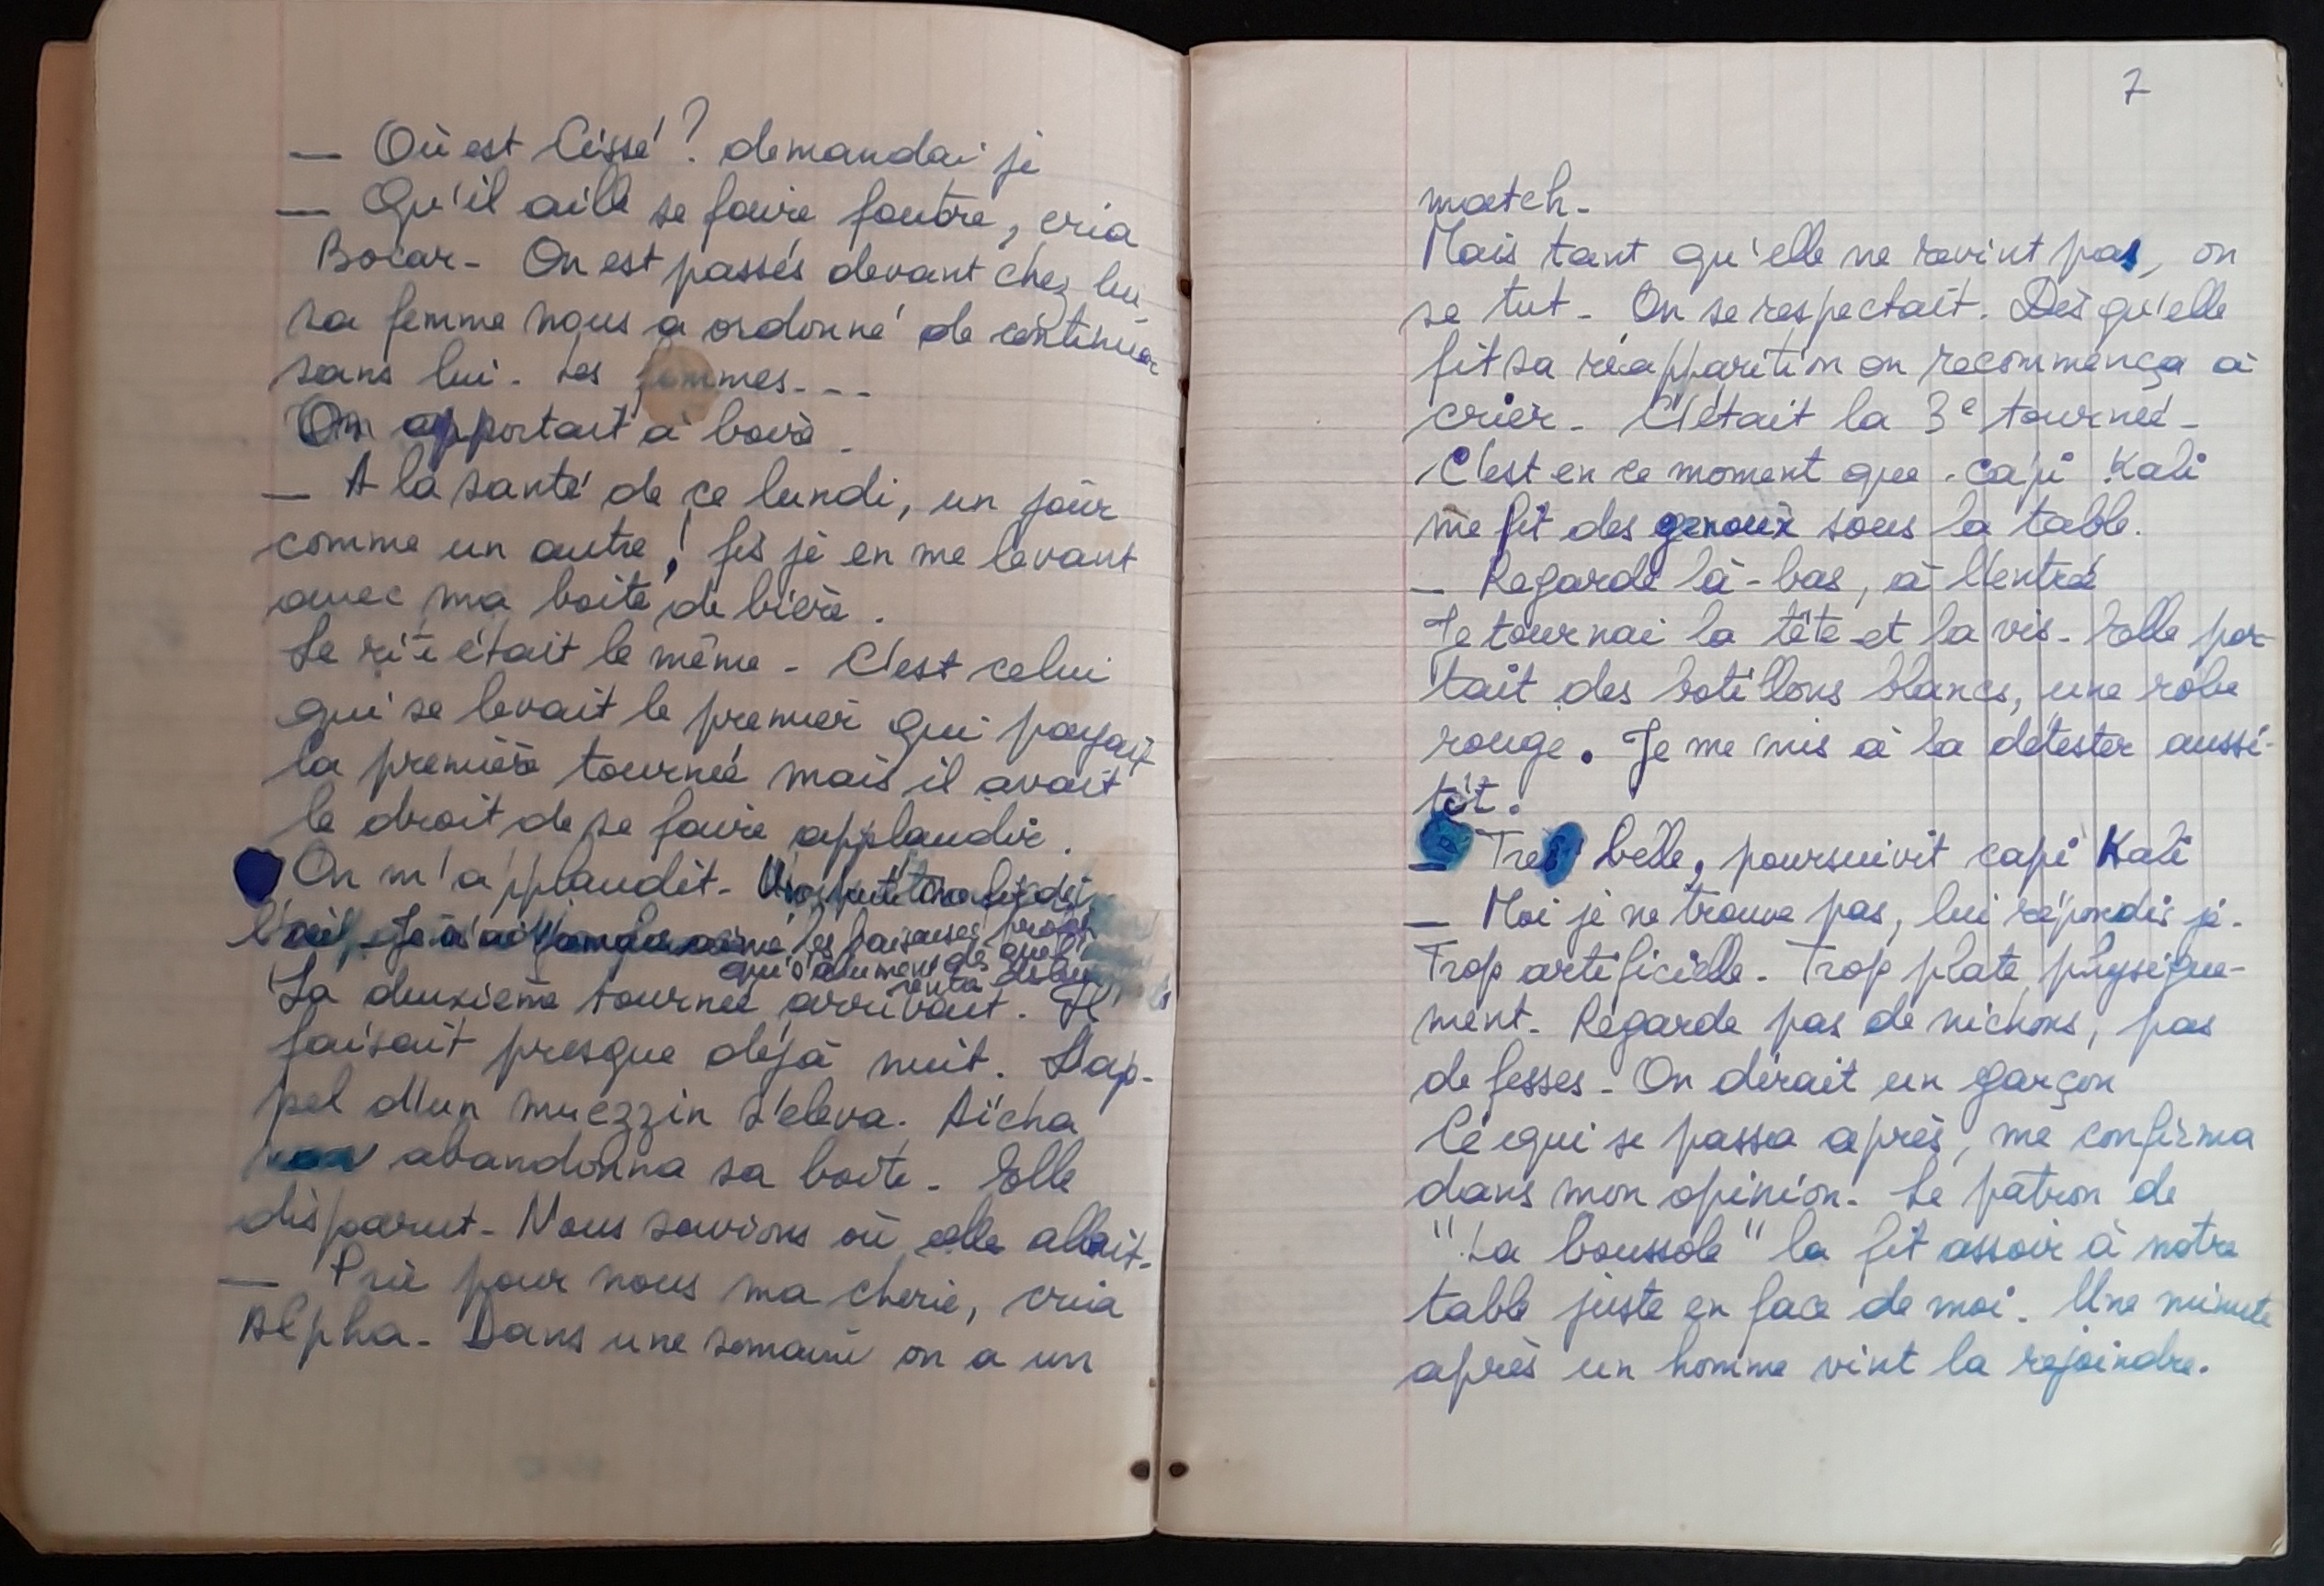 — Où est Cissé ? demandai je
— Qu'il aille se faire foutre, cria
Bocar - On est passés devant chez lui
sa femme nous a ordonné de continuer
sans lui. Les femmes...
On apportait à boire.
— A la santé de ce lundi, un jour
comme un autre ! fis je en me levant
avec ma boite de bière.
Le rite était le même - C'est celui
qui se levait le premier qui payait
la première tournée mais il avait
le droit de se faire applaudir.
On m'applaudit -
l'œil. Je n'ai jamais aimé les
qui s'allument dès
La deuxième tournée arrivait. Il
faisait presque déjà nuit. L'ap-
pel d'un muezzin s'eleva. Aïcha
abandonna sa boite - Elle
disparut - Nous savions où elle allait -
— Prie pour nous ma cherie, cria
Alpha - Dans une semaine on a un
7
match -
Mais tant qu'elle ne revint pas, on
se tut - On se respectait. Dès qu'elle
fit sa réapparition on recommença à
crier - C'était la 3e tournée -
C'est en ce moment que capi Kali
me fit des genoux sous la table.
— Regarde là-bas, à l'entrée
Je tournai la tête et la vis - Elle por-
tait des botillons blancs, une robe
rouge. Je me mis à la détester aussi-
tôt.
— Tres belle, poursuivit capi Kali
— Moi je ne trouve pas, lui répondis je.
Trop artificielle - Trop plate physique-
ment - Regarde pas de nichons, pas
de fesses - On dirait un garçon
Ce qui se passa après, me confirma
dans mon opinion - Le patron de
"La boussole" la fit assoir à notre
table juste en face de moi. Une minute
après un homme vint la rejoindre.